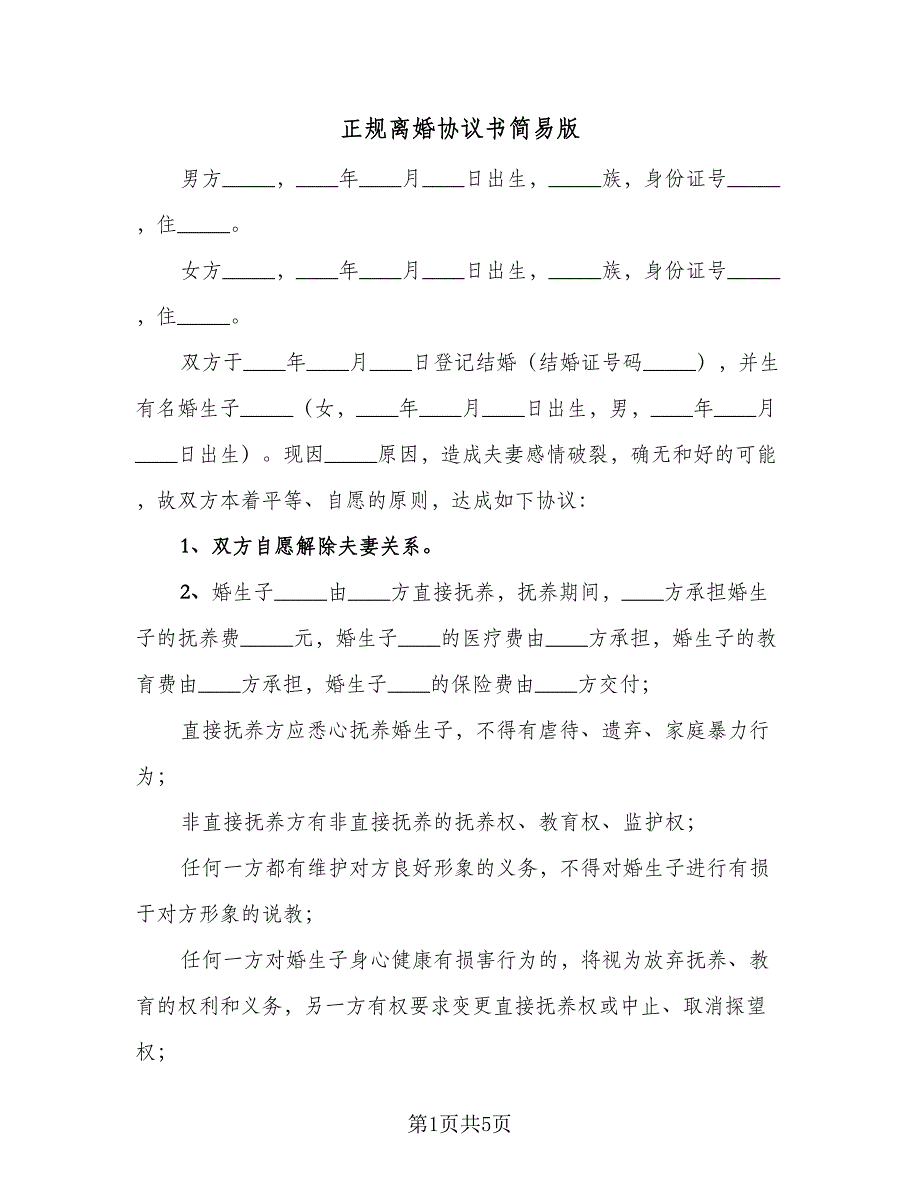 正规离婚协议书简易版
男方_____，____年____月____日出生，_____族，身份证号_____
，住_____。
女方_____，____年____月____日出生，_____族，身份证号_____
，住_____。
双方于____年____月____日登记结婚（结婚证号码_____），并生
有名婚生子_____（女，____年____月____日出生，男，____年____月
____日出生）。现因_____原因，造成夫妻感情破裂，确无和好的可能
，故双方本着平等、自愿的原则，达成如下协议：
1、双方自愿解除夫妻关系。
2、婚生子_____由____方直接抚养，抚养期间，____方承担婚生
子的抚养费_____元，婚生子____的医疗费由____方承担，婚生子的教
育费由____方承担，婚生子____的保险费由____方交付；
直接抚养方应悉心抚养婚生子，不得有虐待、遗弃、家庭暴力行
为；
非直接抚养方有非直接抚养的抚养权、教育权、监护权；
任何一方都有维护对方良好形象的义务，不得对婚生子进行有损
于对方形象的说教；
任何一方对婚生子身心健康有损害行为的，将视为放弃抚养、教
育的权利和义务，另一方有权要求变更直接抚养权或中止、取消探望
权；
第1页共5页